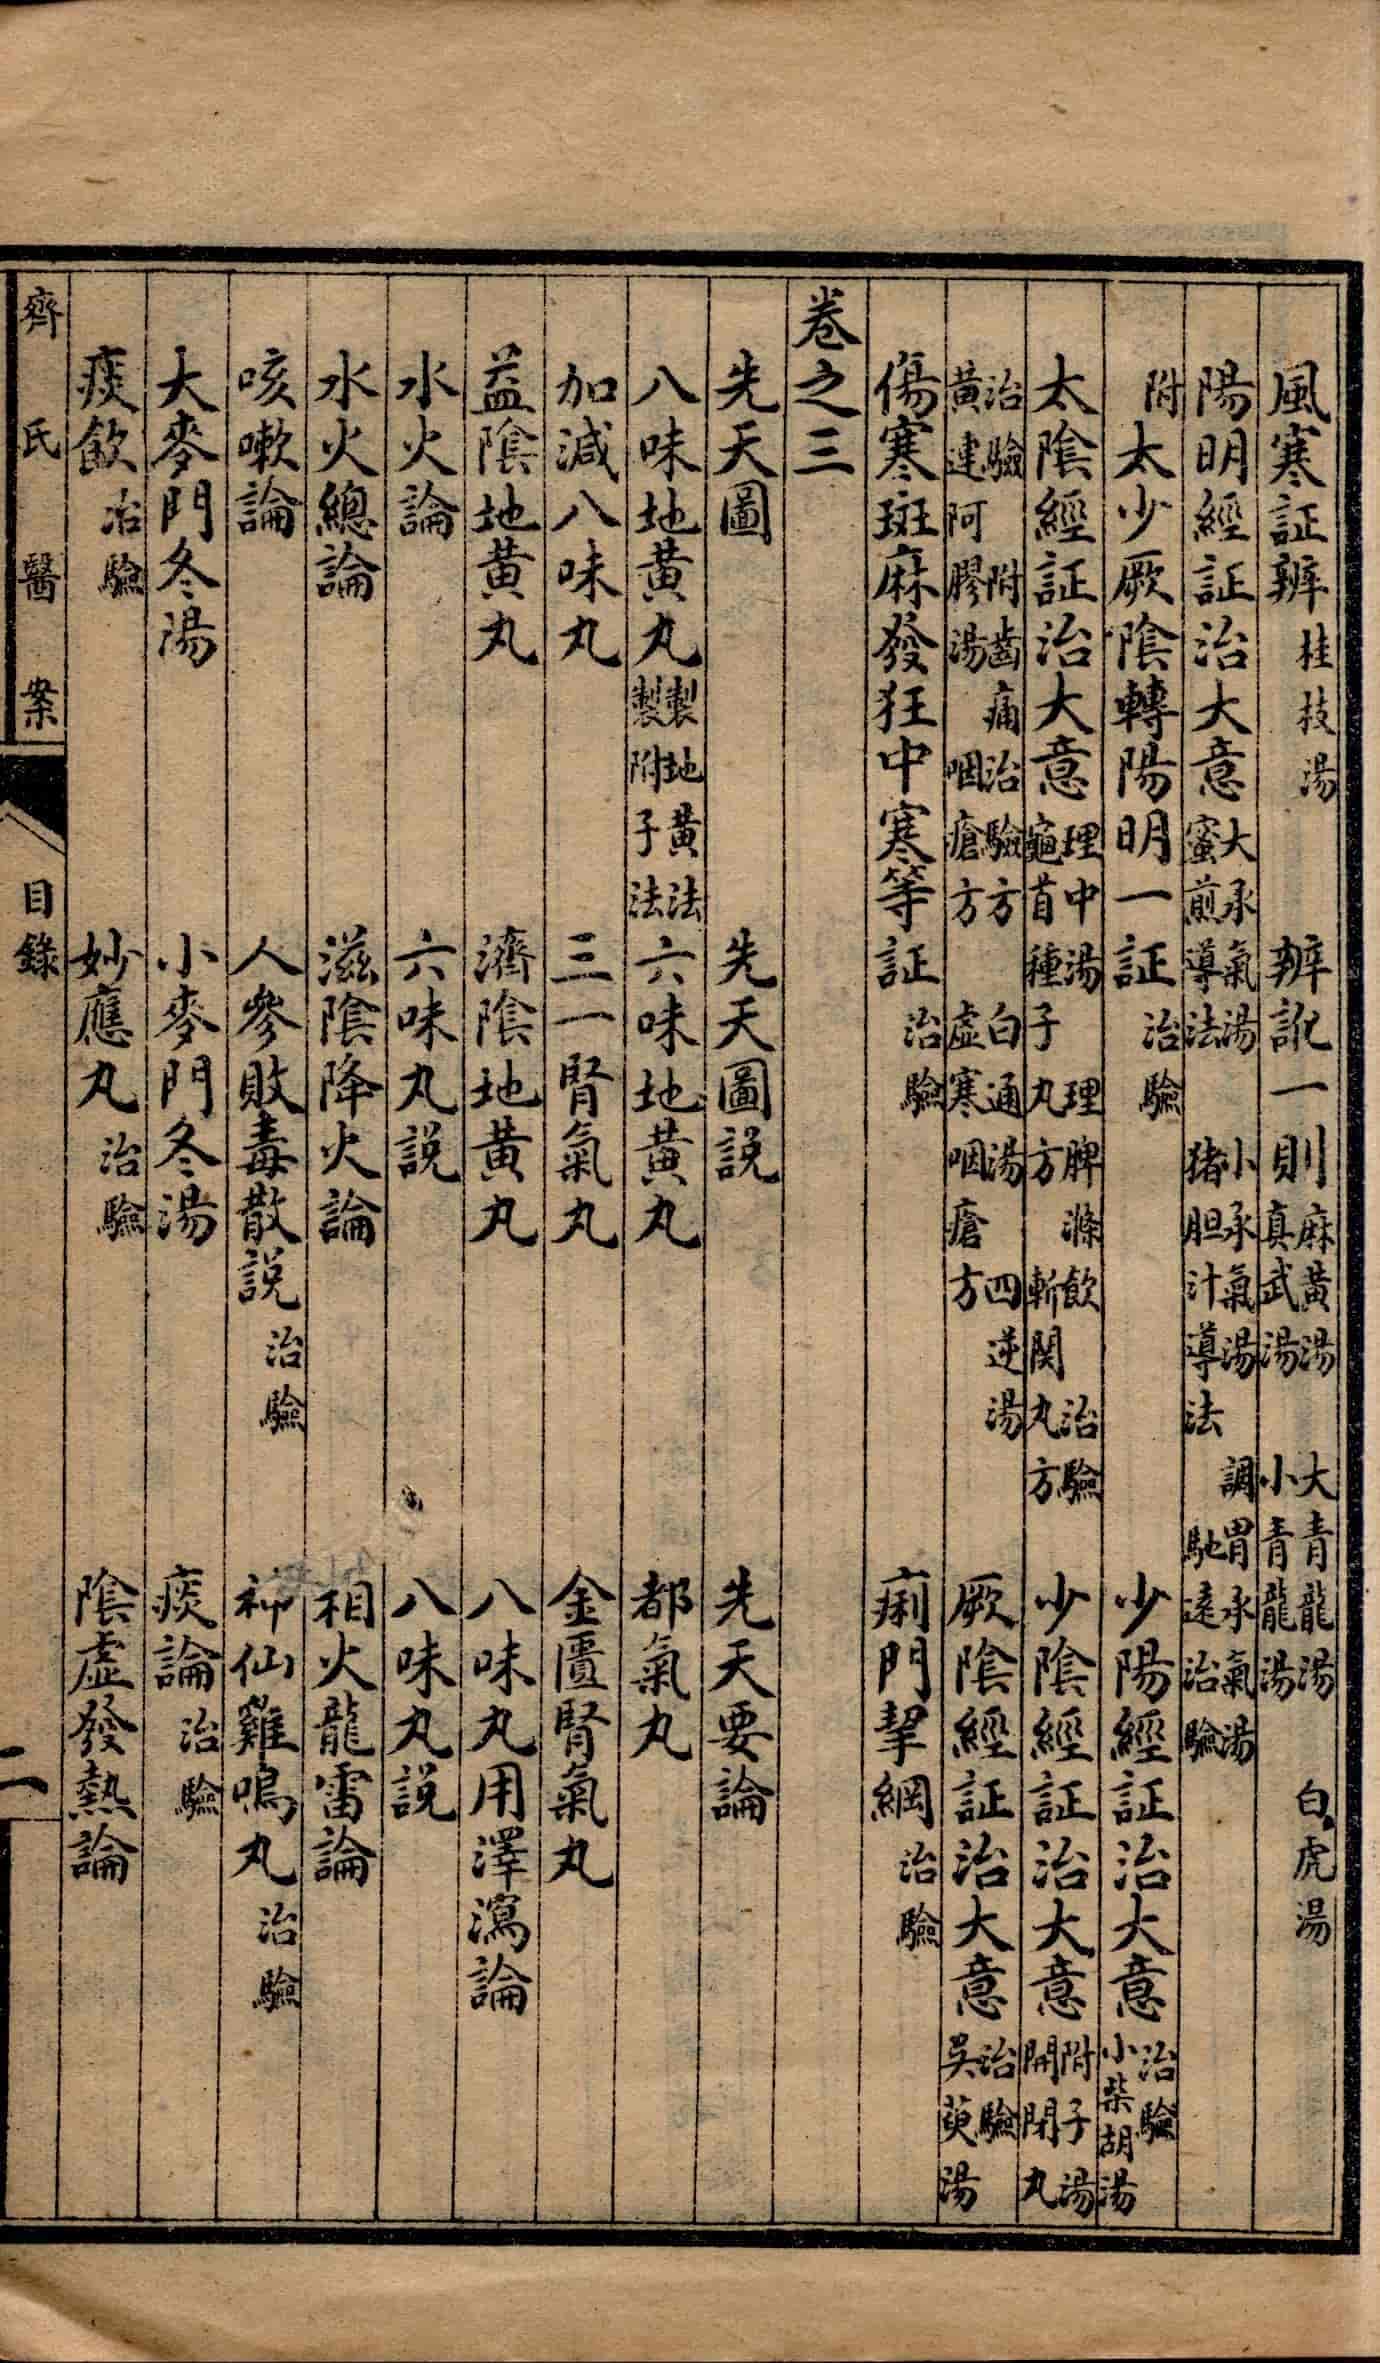 風寒証辨 桂枝湯 辨訛一則 麻黃湯 真武湯 大青龍湯 小青龍湯 白虎湯
陽明經証治大意 大承氣湯 蜜煎導法 小承氣湯 猪胆汁導法 調胃承氣湯 馳遠治驗
附太少厥陰轉陽明一証 治驗 少陽經証治大意 治驗 小柴胡湯
太陰經証治大意 理中湯 龜首種子丸方 理脾滌飲 斬関丸方 治驗 少陰經証治大意 附子湯 開閉丸
治驗 附齒痛治驗方 白通湯 四逆湯 黃連阿膠湯 咽瘡方 虛寒咽瘡方 厥陰經証治大意 治驗 吳萸湯
傷寒斑麻發狂中寒等証 治驗 痢門挈綱 治驗
卷之三
先天圖 先天圖説 先天要論
八味地黃丸 製地黃法 製附子法 六味地黃丸 都氣丸
加減八味丸 三一腎氣丸 金匱腎氣丸
益陰地黃丸 濟陰地黃丸 八味丸用澤瀉論
水火論 六味丸説 八味丸説
水火總論 滋陰降火論 相火龍雷論
咳嗽論 人參敗毒散説 治驗 神仙雞鳴丸 治驗
大麥門冬湯 小麥門冬湯 痰論 治驗
痰飲 治驗 妙應丸 治驗 陰虛發熱論
齊氏醫案 目錄 二